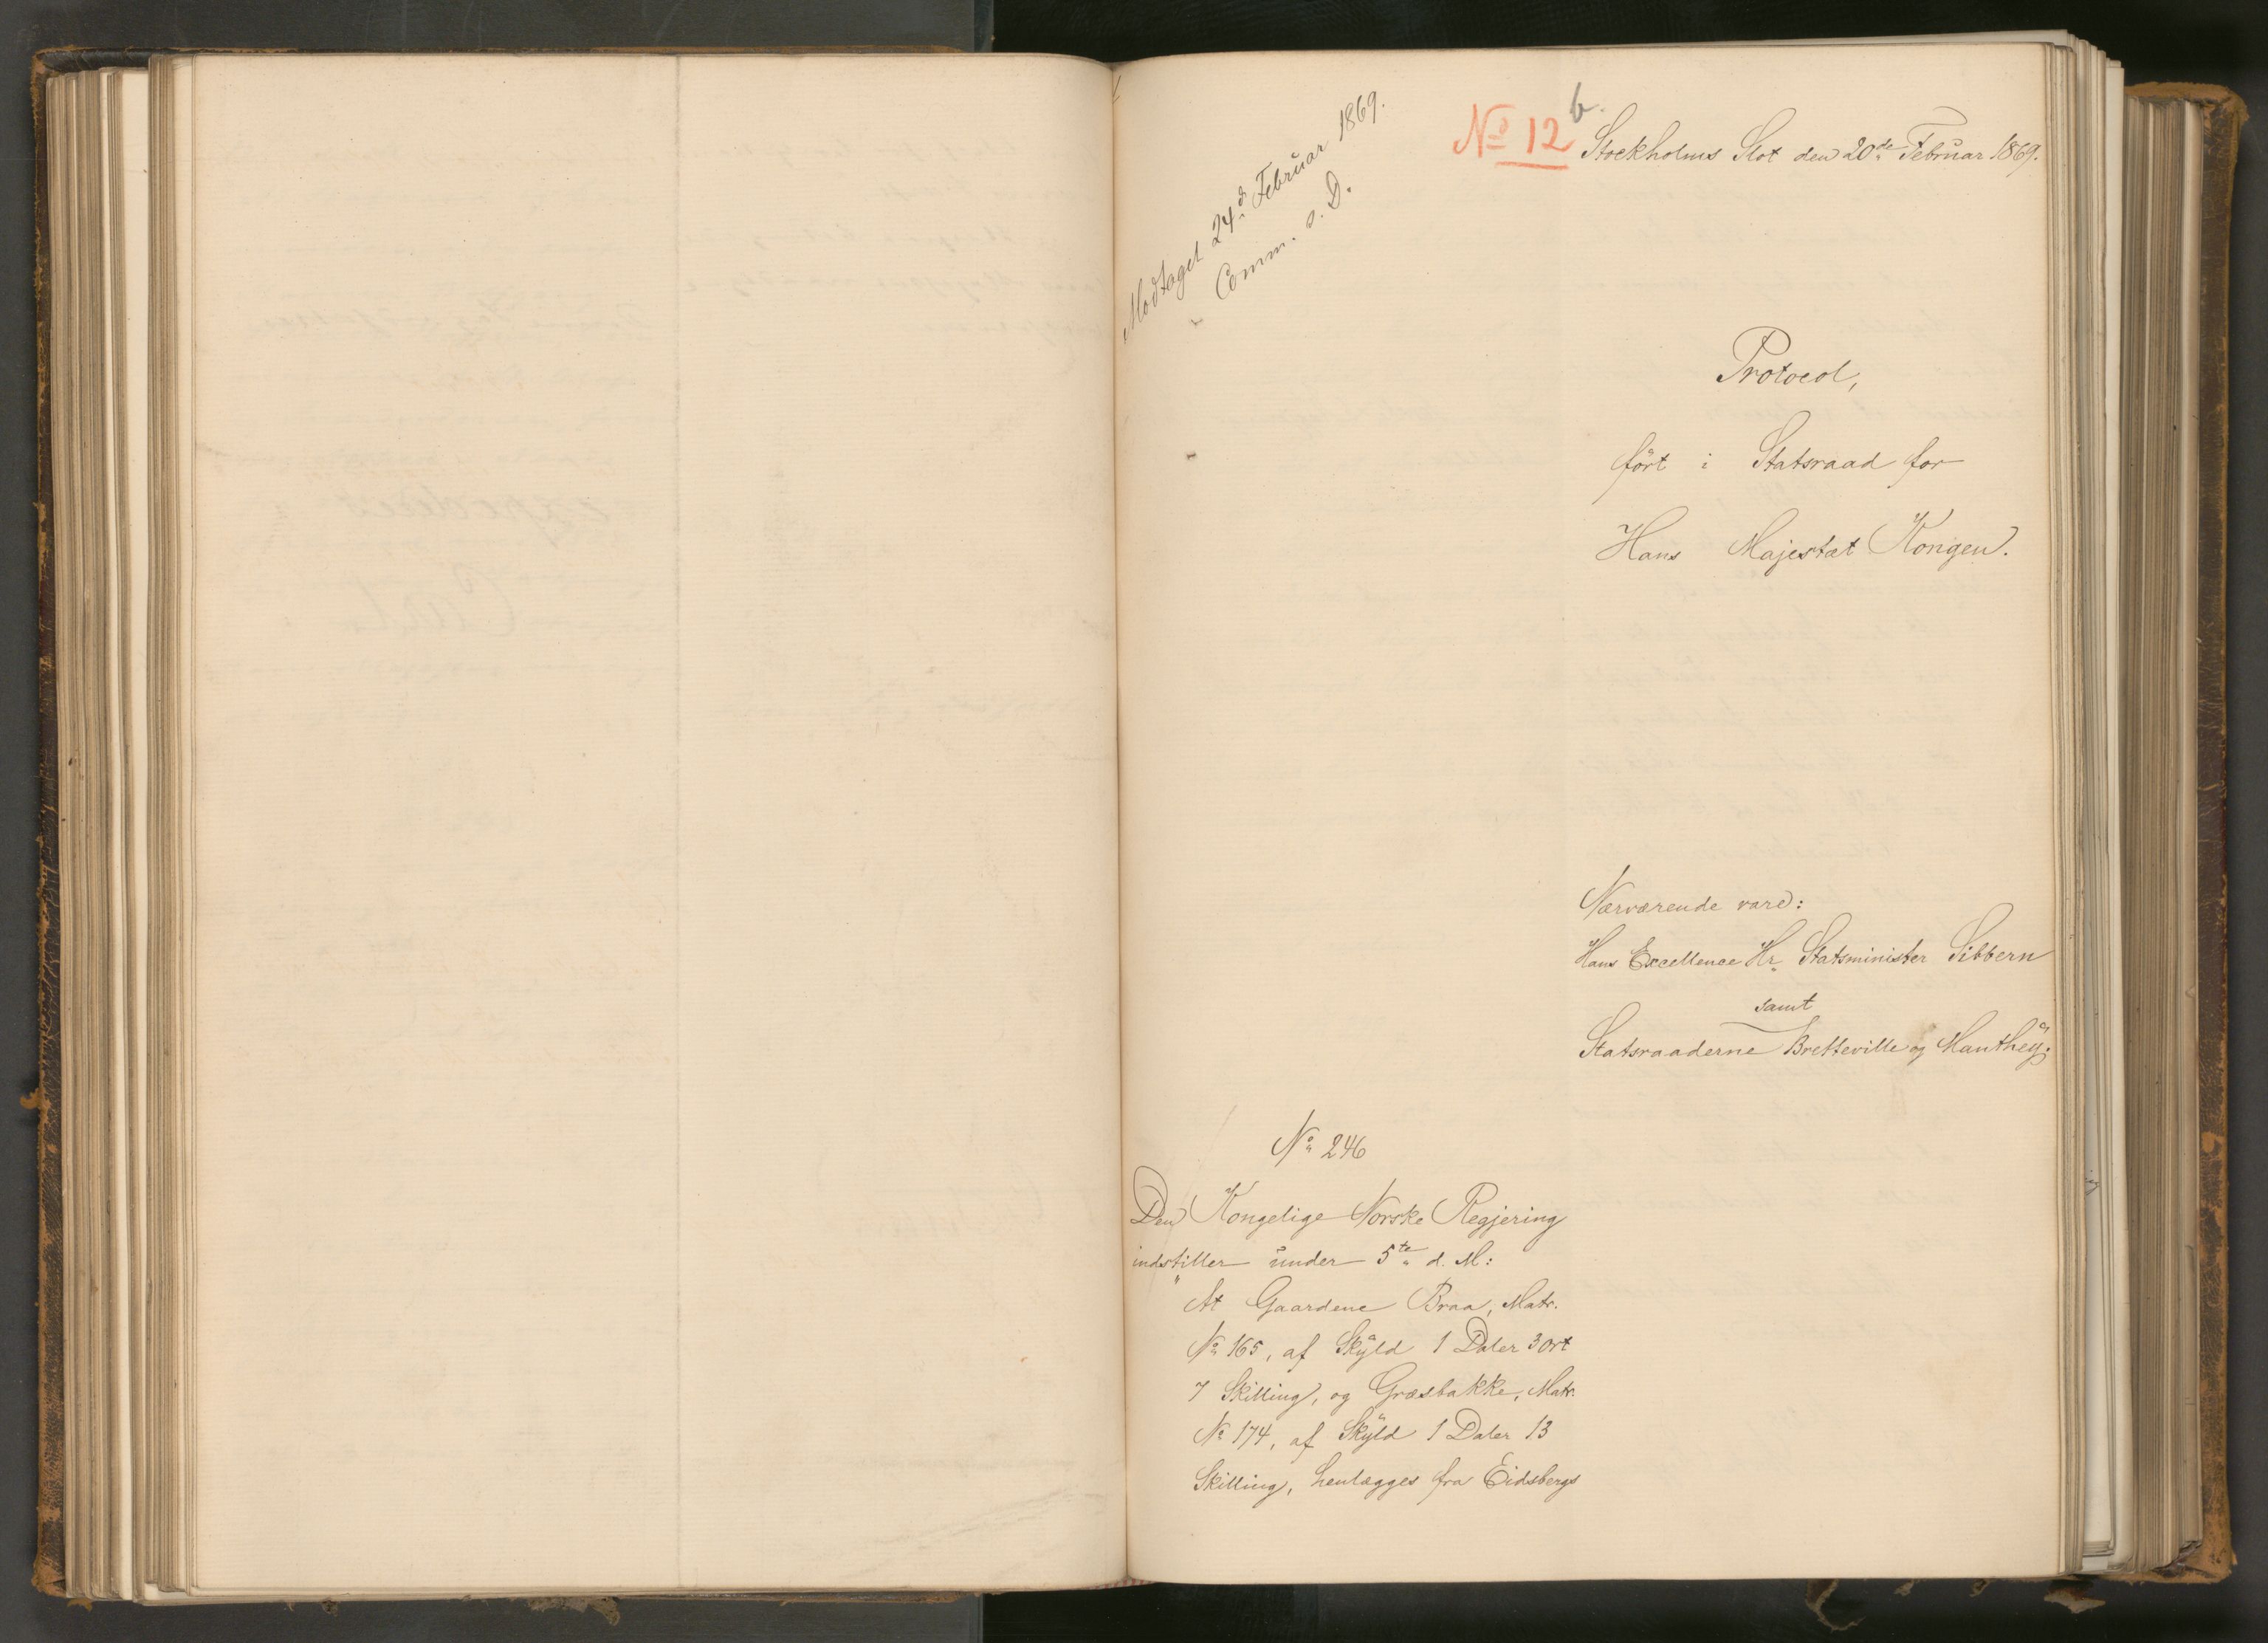 Modtaget 24d Februar 1869.
Comm. s. D.
No 12 b.
Stockholms Slot den 20de Februar 1869.
Protocol,
ført i Statsraad for
Hans Majestæt Kongen.
Nærværende vare:
Hans Excellence Hr. Statsminister Sibbern
samt
Statsraaderne Bretteville og Manthey.
No 246
Den Kongelige Norske Regjering
indstiller under 5te d. M:
"At Gaardene Braa, Matr.
No 165, af Skyld 1 Daler 3 Ort
7 Skilling, og Græsbakke, Matr.
No 174, af Skyld 1 Daler 13
Skilling, henlægges fra Eidsbergs